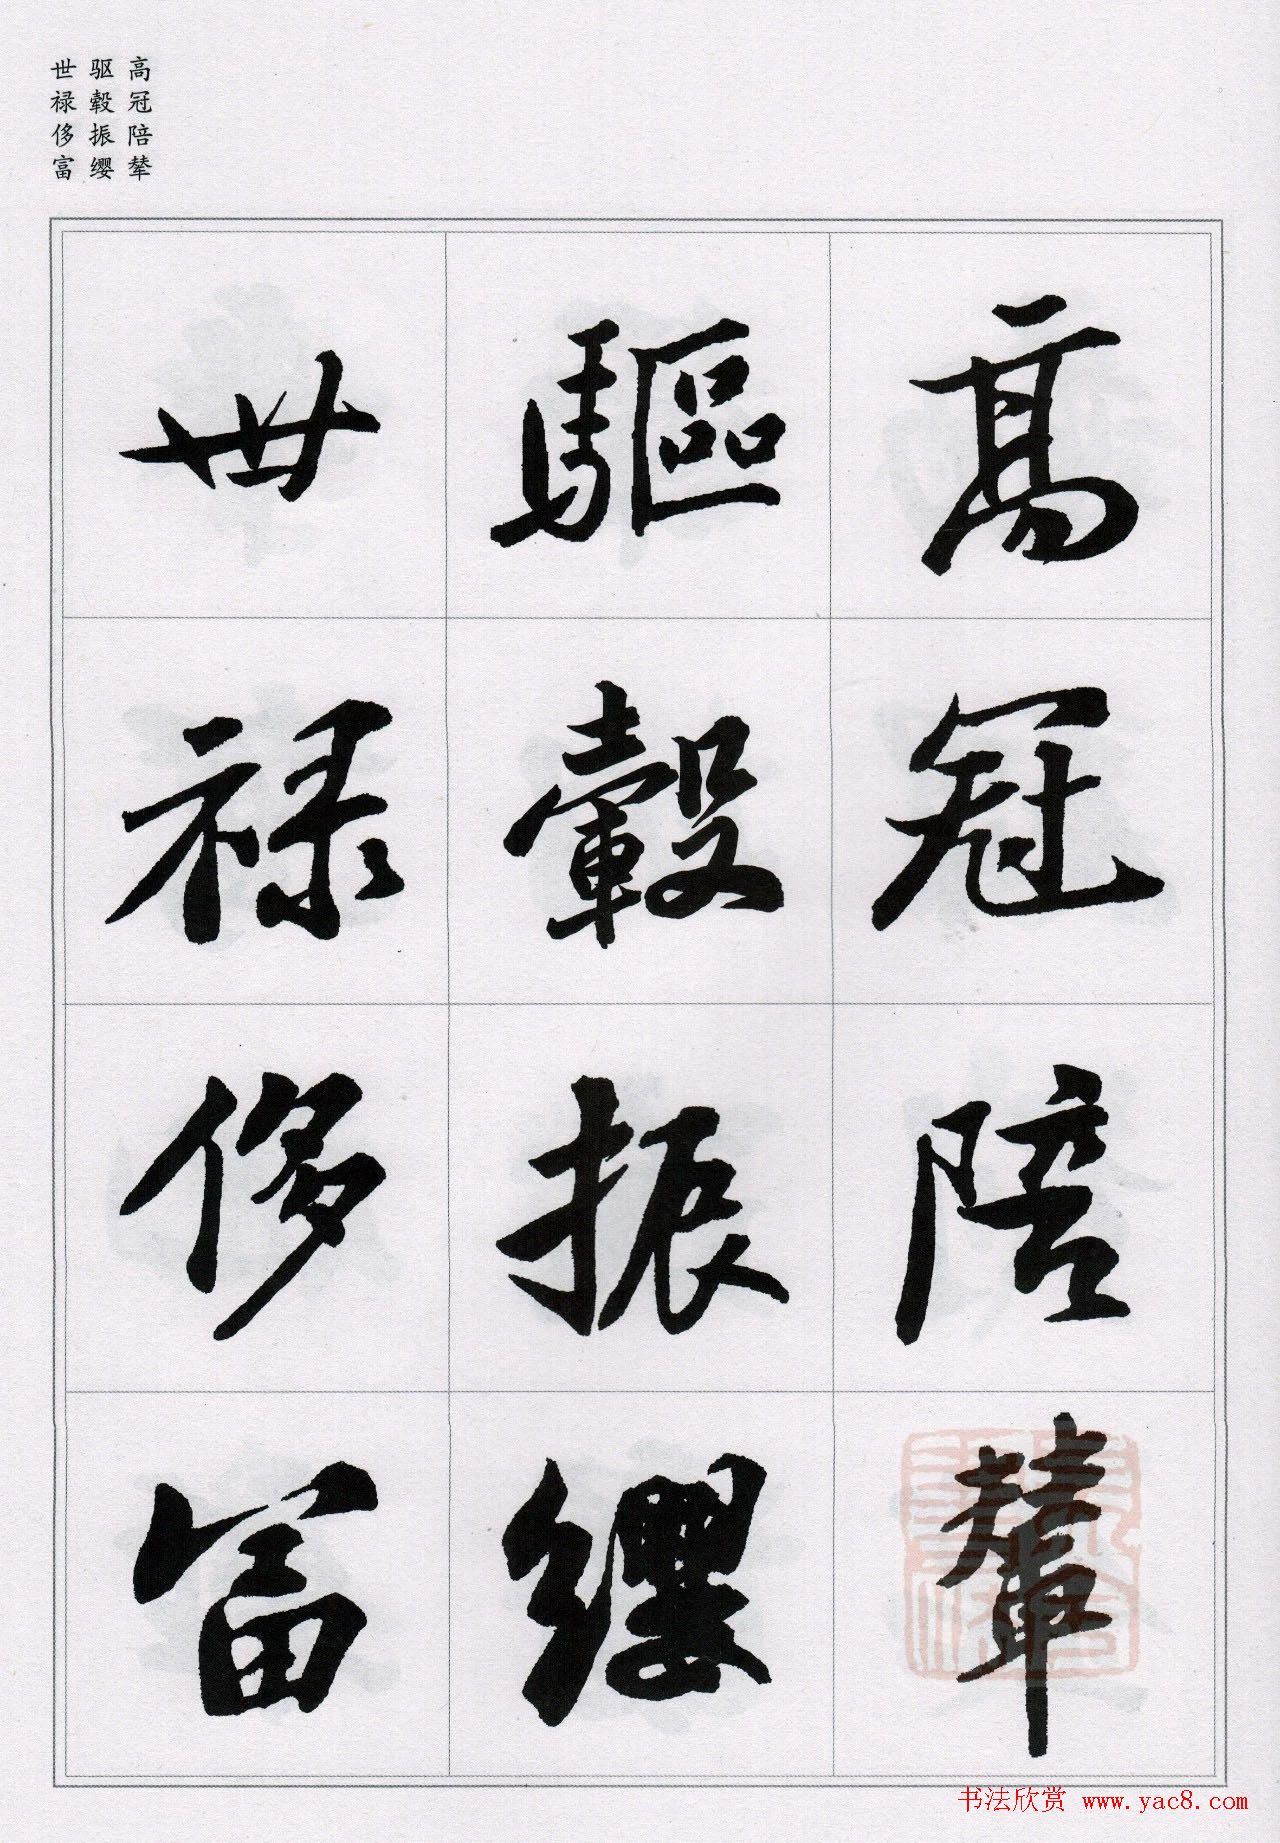 高冠陪辇
驱毂振缨
世禄侈富
高冠陪輦
驅轂振纓
世禄侈富
书法欣赏 www.yac8.com